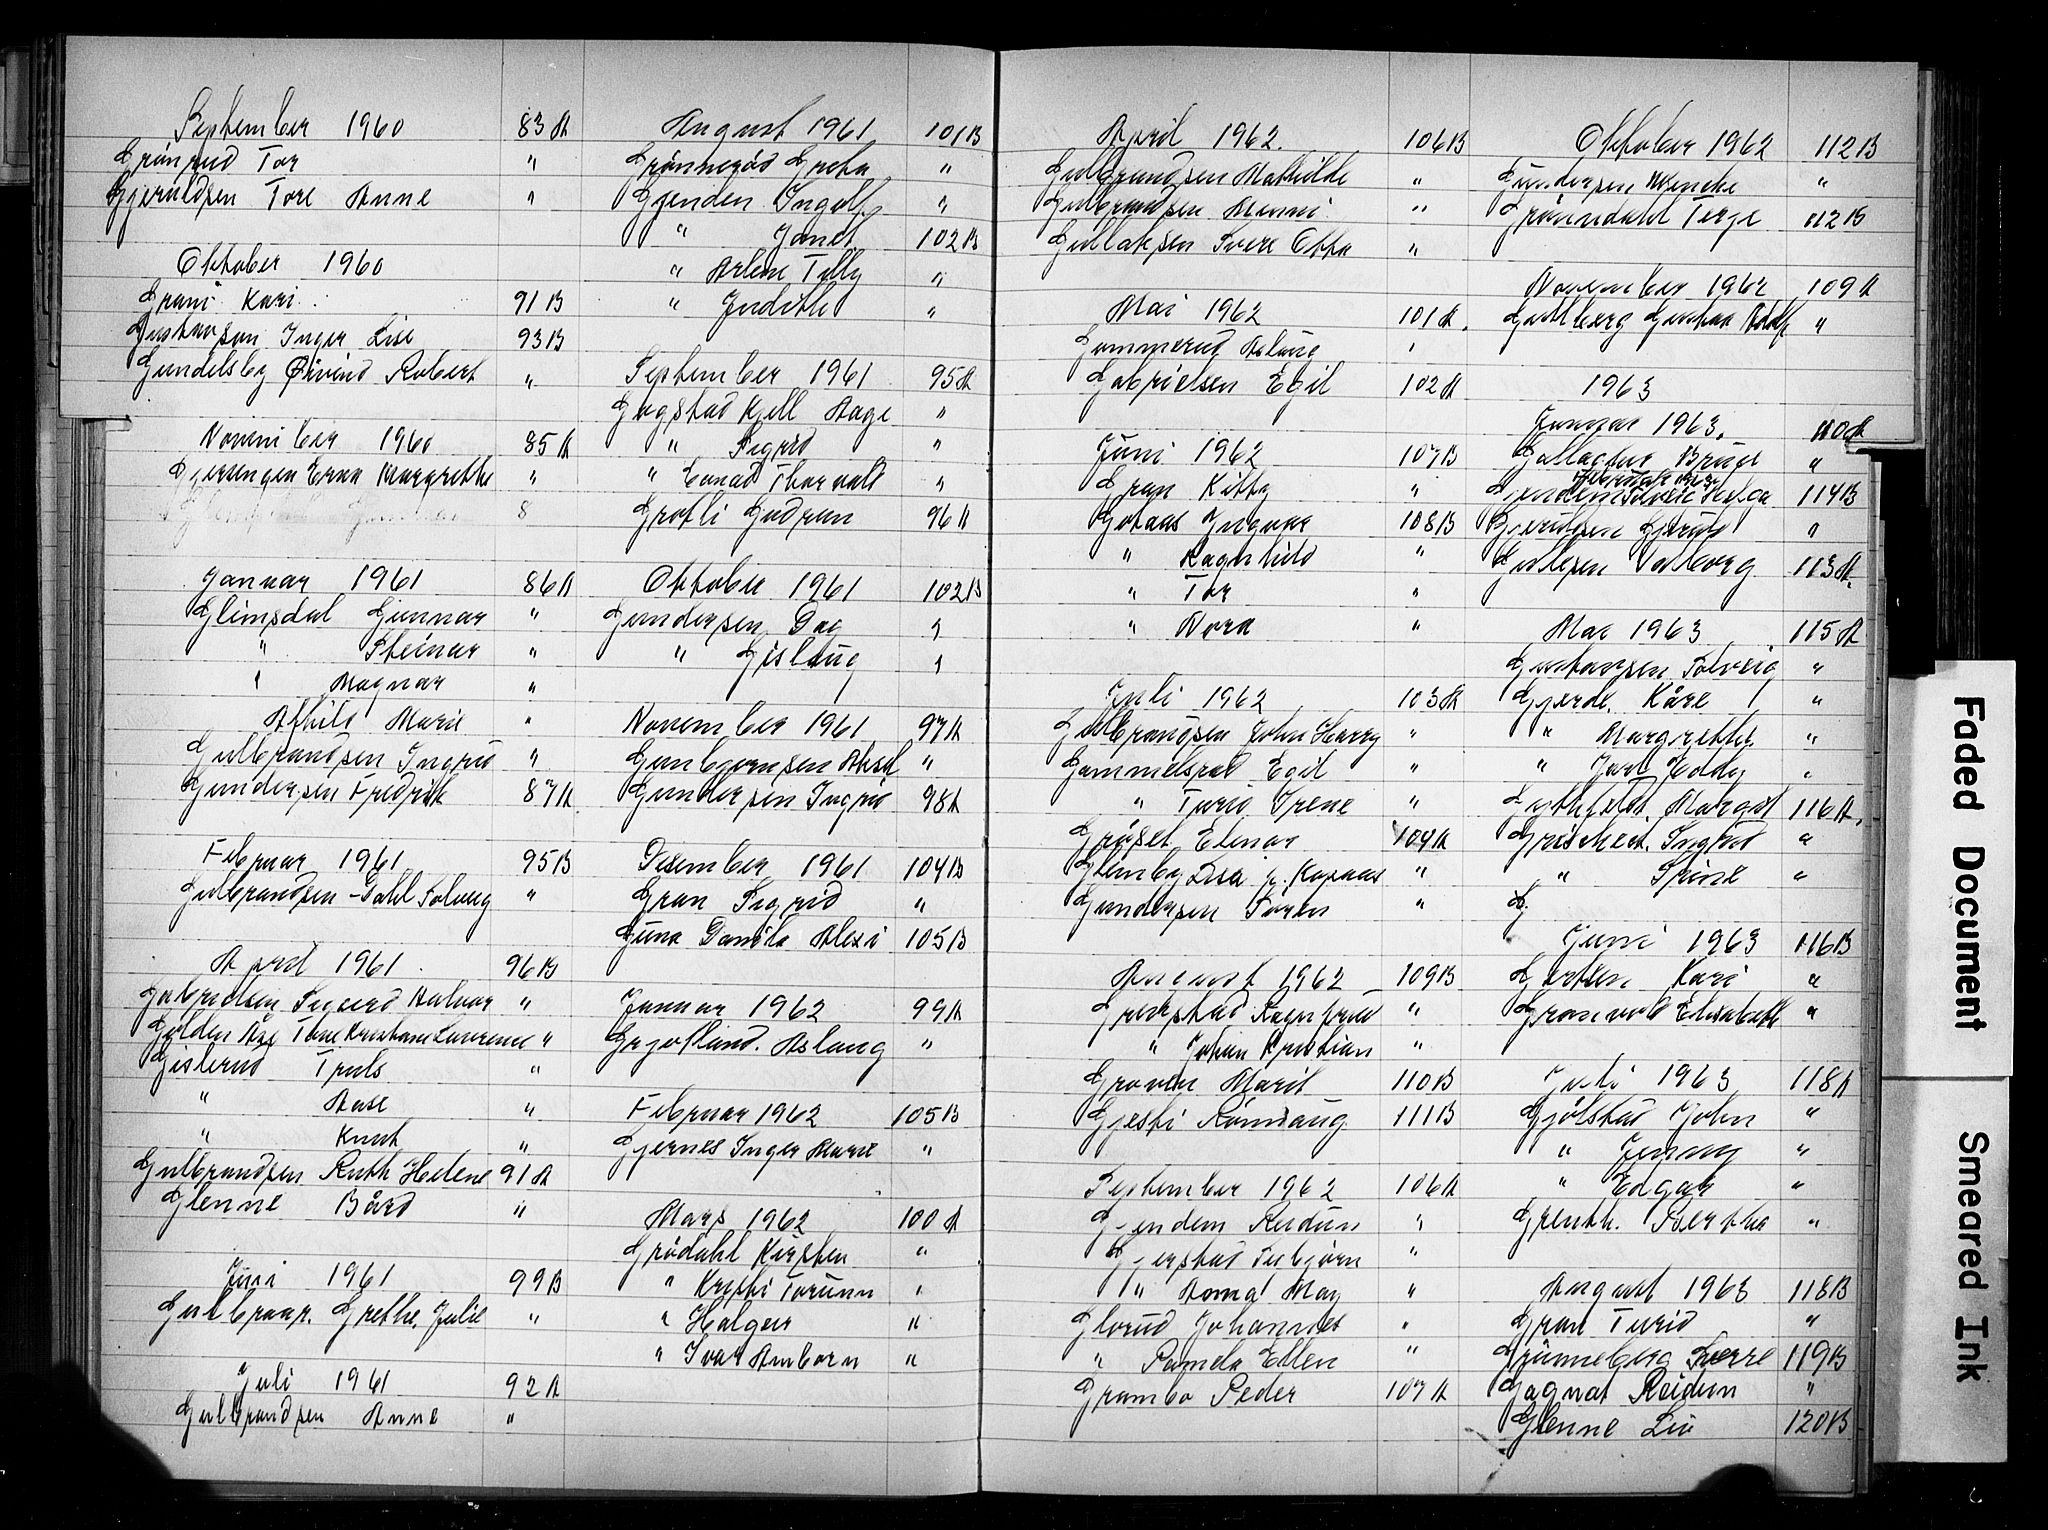 September 1960 83A
Grönrud Tor "
Gjeruldsen Tore Anne "
Oktober 1960
Grani Kari 91B
Gustavson Inger Lise 93B
Gundelsby Øivind Robert "
November 1960 85A
Gjersengen Erna Margrethe "
8
Januar 1961 86A
Glimsdal Gunnar "
" Steinar "
" Magnar "
Afhild Marie "
Gulbrandsen Ingrid "
Gundersen Fredrik 87A
Februar 1961 95B
Gulbrandsen-Dahl Solveig "
April 1961 96B
Gabrielsen Sigurd Halvar "
Gulden Åse Tone Kristiane Laurence "
Gislerud Truls "
" Aase "
" Knut "
Gulbrandsen Ruth Helene 91A
Glenne Bård "
Juni 1961 99B
Gulbraar. Grethe Julie "
Juli 1961 92A
Gulbrandsen Anne "
August 1961 101B
Grönneröd Greta "
Gjenden Ingolf "
" Janet 102B
" Arlene Tilly "
" Judith "
September 1961 95A
Gogstad Kjell Aage "
" Sigrid "
" Thorvald "
Grotli Gudrun 96A
Oktober 1961 102B
Gundersen Dag "
" Gislaug "
November 1961 97A
Gunbjørnsen Aksel "
Gundersen Ingrid 98A
Desember 1961 104B
Gran Sigrid "
Guna Danila Alexi 105B
Januar 1962 99A
Grjotland. Aslaug "
Februar 1962 105B
Gjernes Inger Marie "
Mars 1962 100A
Grödahl Kirsten "
" Kristi Torunn "
" Holger "
" Ivar Amborn "
April 1962. 106B
Gulbrandsen Mathilde "
Gulbrandsen Menni "
Gullaksen Svere Otto "
Mai 1962 101A.
Gommerud Aslaug "
Gabrielsen Egil 102A
Juni 1962 107B
Gran Kitty "
Gotaas Ingvar 108B
" Ragnhild "
" Tor "
" Nora "
Juli 1962 103A
Gulbrandsen John Harry "
Gammelsrød Egil "
" Turid Irene "
Gråset Elinor 104A
Glemby Lisa "
Gundersen Søren "
August 1962 109B
Grepstad Ragnfrid "
" Johan Kristian "
Groven Marit 110B
Gjesti Rönnaug 111B
September 1962 106A
Gjendem Reidun "
Gjerstad Torbjørn "
" Anna May "
Glorud Johannes "
" Pamela Ellen "
Grambo Peder 107A
Oktober 1962 112B
Gundersen Wenche "
Gränndahl Terje 112B
November 1962 109A
Gullberg Gustav Adolf "
1963
Januar 1963. 110A
Gallacher Bruce "
Februar 1963
Gjendem Solveig Helga 114B
Gjeruldsen Gjerud "
Gullksen Valborg 113A.
Mai 1963 115A
Gustavsen Solveig "
Gjerde. Kåre "
" Margrethe "
" Jarl Eddy "
Gythfeldt. Margot 116A.
Grischeck. Ingrid "
" Stine "
G.
Juni 1963 116B
Garthen Kari "
Granvold Elisabeth "
Juli 1963 118A
Gjölstad John "
" Jenny "
" Edgar "
Grenth. Bertha "
August 1963 118B
Gran Turid "
Grünneberg Sverre 119B
Gagnat Reidun "
Glenne Liv 120B
Faded Document Smeared Ink